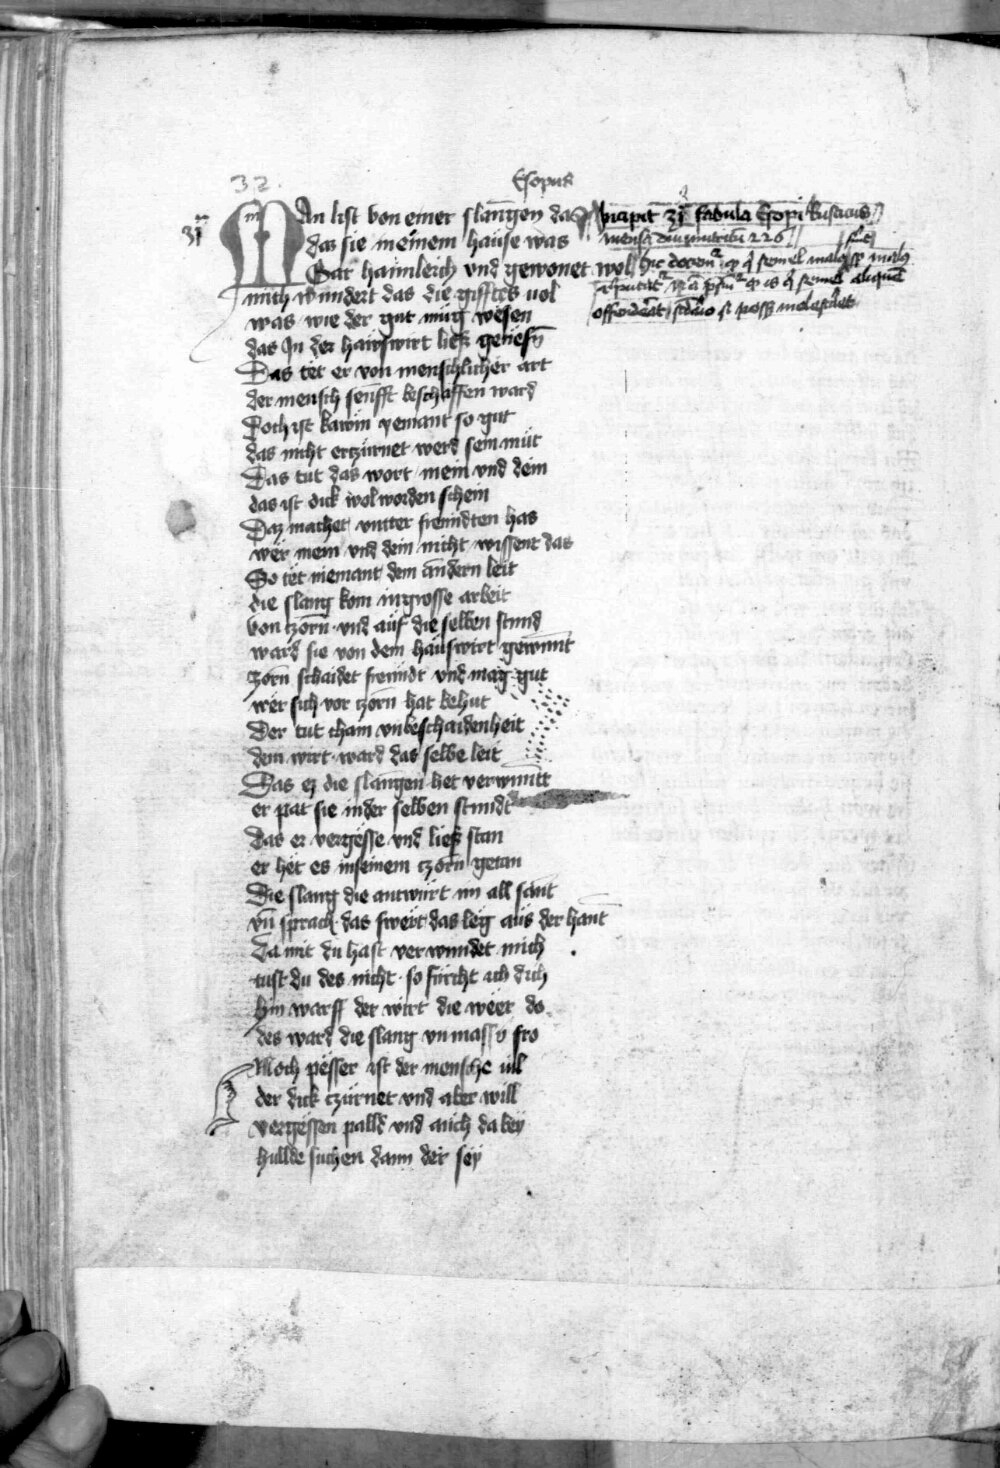 32.
Esopus
MAn list von einer slangen das
31
das sie meinem hause was
Gar haimleich vnd gewonet wol
mich wundert das die gifftes uol
was wie der gut mug wesen
das In der hawswirt lies geniesen
Das tet er von menschlicher art
der mensch senfft beschaffen ward
Doch ist kawm yemant so gut
das nicht erczurnet werd sein mut
Das tut das wort mein vnd dein
das ist dick wol worden schein
Daz machet vnter freundten has
wer mein vnd dein nicht wissent das
So tet niemant dem andern leit
die slang kom in grosse arbeit
von czorn vnd auf die selben stund
ward sie von dem hauswirt gewunnt
Zorn schaidet freundt vnd mag gut
wer sich vor czorn hat behut
Der tut cham vnbeschaidenheit
dem wirt ward das selbe leit
Das er die slangen het verwuntt
er pat sie in der selben stundt
Das er vergesse vnd lies stan
er het es in seinem czorn getan
Die slang die antwurt im all sant
vnd sprach das swert das leg aus der hant
Da mit du hast verwundet mich
tust du des nicht so furcht ich dich
hin warff der wirt die weer do
des ward die slang vnmassen fro
Noch pesser ist der mensche uil
der dick czurnet vnd aber will
vergessen palld vnd auch da bey
hullde suchen dann der sey
Incipit 31 fabula Esopi Rusticus
mensa 226
semel
reputatur semel aliquem
offenderat si posset molestaret